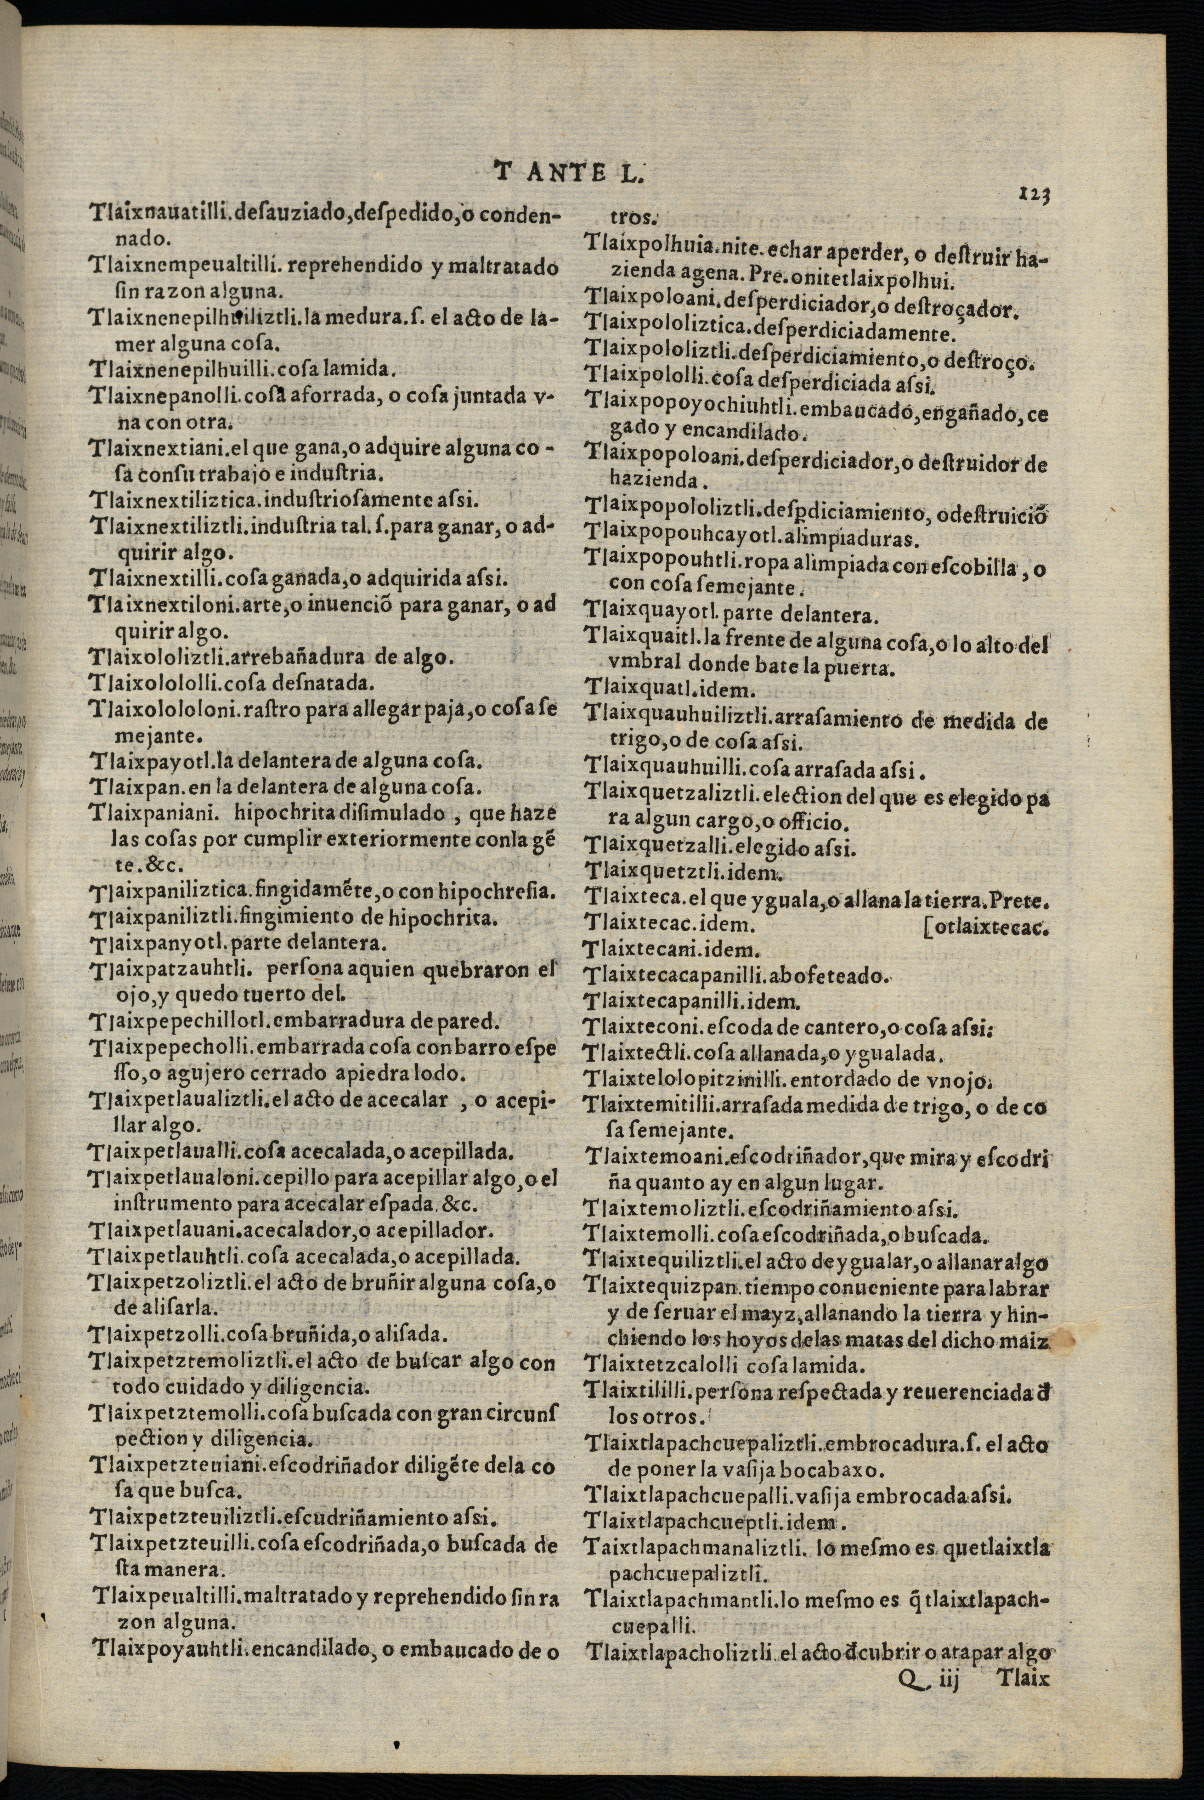 T ANTE L.
123
Tlaixnauatilli.deſauziado,deſpedido,o conden-
nado.
Tlaixnempeualtilli. reprehendido y maltratado
ſin razon alguna.
Tlaixnenepilhuiliztli.la medura.ſ. el acto de la-
mer alguna coſa.
Tlaixnenepilhuilli.coſa lamida.
Tlaixnepanolli.coſa aforrada, o coſa juntada v-
na con otra.
Tlaixnextiani.el que gana,o adquire alguna co -
ſa conſu trabajo e induſtria.
Tlaixnextiliztica.induſtrioſamente aſsi.
Tlaixnextiliztli.induſtria tal.ſ.para ganar, o ad-
quirir algo.
Tlaixnextilli.coſa ganada,o adquirida aſsi.
Tlaixnextiloni.arte,o inuenciõ para ganar, o ad
quirir algo.
Tlaixololiztli.arrebañadura de algo.
Tlaixolololli.coſa deſnatada.
Tlaixolololoni.raſtro para allegar paja,o coſa ſe
mejante.
Tlaixpayotl.la delantera de alguna coſa.
Tlaixpan.en la delantera de alguna coſa.
Tlaixpaniani. hipochrita diſimulado , que haze
las coſas por cumplir exteriormente conla gẽ
te.&c.
Tlaixpaniliztica.fingidamẽte,o con hipochreſia.
Tlaixpaniliztli.fingimiento de hipochrita.
Tlaixpanyotl.parte delantera.
Tlaixpatzauhtli. perſona aquien quebraron el
ojo,y quedo tuerto del.
Tlaixpepechillotl.embarradura de pared.
Tlaixpepecholli.embarrada coſa con barro eſpe
ſſo,o agujero cerrado apiedra lodo.
Tlaixpetlaualiztli.el acto de acecalar , o acepi-
llar algo.
Tlaixpetlaualli.coſa acecalada,o acepillada.
Tlaixpetlaualoni.cepillo para acepillar algo,o el
inſtrumento para acecalar eſpada.&c.
Tlaixpetlauani.acecalador,o acepillador.
Tlaixpetlauhtli.coſa acecalada,o acepillada.
Tlaixpetzoliztli.el acto de bruñir alguna coſa,o
de aliſarla.
Tlaixpetzolli.coſa bruñida,o aliſada.
Tlaixpetztemoliztli.el acto de buſcar algo con
todo cuidado y diligencia.
Tlaixpetztemolli.coſa buſcada con gran circunſ
pection y diligencia.
Tlaixpetzteuiani.eſcodriñador diligẽte dela co
ſa que buſca.
Tlaixpetzteuiliztli.eſcudriñamiento aſsi.
Tlaixpetzteuilli.coſa eſcodriñada,o buſcada de
ſta manera.
Tlaixpeualtilli.maltratado y reprehendido ſin ra
zon alguna.
Tlaixpoyauhtli.encandilado, o embaucado de o
tros.
Tlaixpolhuia.nite.echar aperder, o deſtruir ha-
zienda agena. Pre.onitetlaixpolhui.
Tlaixpoloani.deſperdiciador,o deſtroçador.
Tlaixpololiztica.deſperdiciadamente.
Tlaixpololiztli.deſperdiciamiento,o deſtroço.
Tlaixpololli.coſa deſperdiciada aſsi.
Tlaixpopoyochiuhtli.embaucado,engañado,ce
gado y encandilado.
Tlaixpopoloani.deſperdiciador,o deſtruidor de
hazienda.
Tlaixpopololiztli.deſp̱diciamiento, odeſtruiciõ
Tlaixpopouhcayotl.alimpiaduras.
Tlaixpopouhtli.ropa alimpiada con eſcobilla , o
con coſa ſemejante.
Tlaixquayotl.parte delantera.
Tlaixquaitl.la frente de alguna coſa,o lo alto del
vmbral donde bate la puerta.
Tlaixquatl.idem.
Tlaixquauhuiliztli.arraſamiento de medida de
trigo,o de coſa aſsi.
Tlaixquauhuilli.coſa arraſada aſsi.
Tlaixquetzaliztli.election del que es elegido pa
ra algun cargo,o officio.
Tlaixquetzalli.elegido aſsi.
Tlaixquetztli.idem.
Tlaixteca.el que yguala,o allana la tierra.Prete.
Tlaixtecac.idem. [otlaixtecac.
Tlaixtecani.idem.
Tlaixtecacapanilli.abofeteado.
Tlaixtecapanilli.idem.
Tlaixteconi.eſcoda de cantero,o coſa aſsi.
Tlaixtectli.coſa allanada,o ygualada.
Tlaixtelolopitzinilli.entordado de vnojo.
Tlaixtemitilli.arraſada medida de trigo, o de co
ſa ſemejante.
Tlaixtemoani.eſcodriñador,que mira y eſcodri
ña quanto ay en algun lugar.
Tlaixtemoliztli.eſcodriñamiento aſsi.
Tlaixtemolli.coſa eſcodriñada,o buſcada.
Tlaixtequiliztli.el acto de ygualar,o allanar algo
Tlaixtequizpan.tiempo conueniente para labrar
y de ſeruar el mayz,allanando la tierra y hin-
chiendo los hoyos delas matas del dicho maiz
Tlaixtetzcalolli coſa lamida.
Tlaixtililli.perſona reſpectada y reuerenciada đ
los otros.
Tlaixtlapachcuepaliztli.embrocadura.ſ. el acto
de poner la vaſija bocabaxo.
Tlaixtlapachcuepalli.vaſija embrocada aſsi.
Tlaixtlapachcueptli.idem.
Taixtlapachmanaliztli. lo meſmo es quetlaixtla
pachcuepaliztli.
Tlaixtlapachmantli.lo meſmo es q̃ tlaixtlapach-
cuepalli.
Tlaixtlapacholiztli.el acto đcubrir o atapar algo
Q iij Tlaix